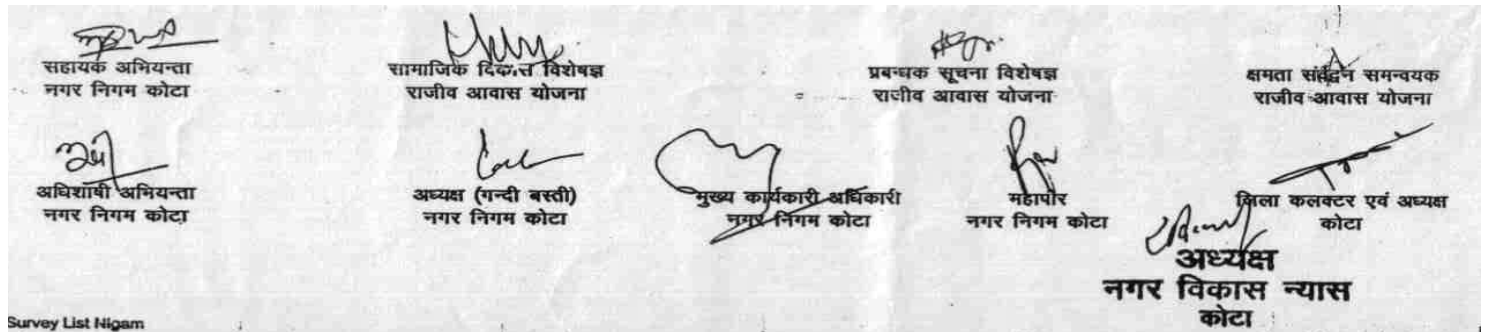 सहायक अभियन्ता
नगर निगम कोटा
सामाजिक विकास विशेषज्ञ
राजीव आवास योजना
प्रबन्धक सूचना विशेषज्ञ
राजीव आवास योजना
क्षमता संवर्द्धन समन्वयक
राजीव आवास योजना
अधिशाषी अभियन्ता
नगर निगम कोटा
अध्यक्ष (गन्दी बस्ती)
नगर निगम कोटा
मुख्य कार्यकारी अधिकारी
नगर निगम कोटा
महापौर
नगर निगम कोटा
जिला कलक्टर एवं अध्यक्ष
कोटा
अध्यक्ष
नगर विकास न्यास
कोटा
Survey List Nigam